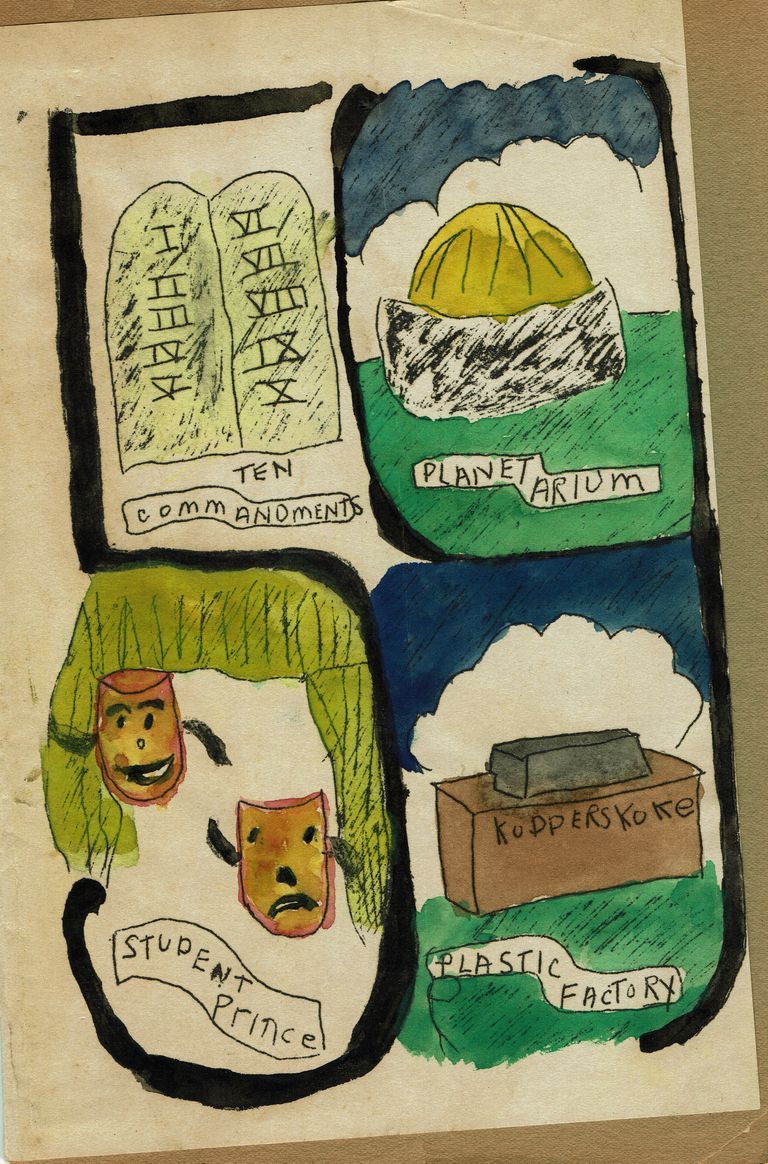 TEN
COMMANDMENTS
PLANETARIUM
STUDENT
PrINce
KOPPERSKOKe
PLASTIC
FACTORY